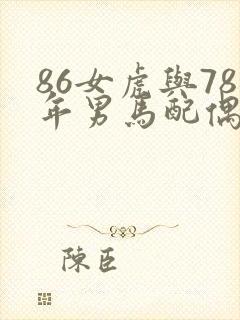 86女虎與78
年男馬配偶
陳臣